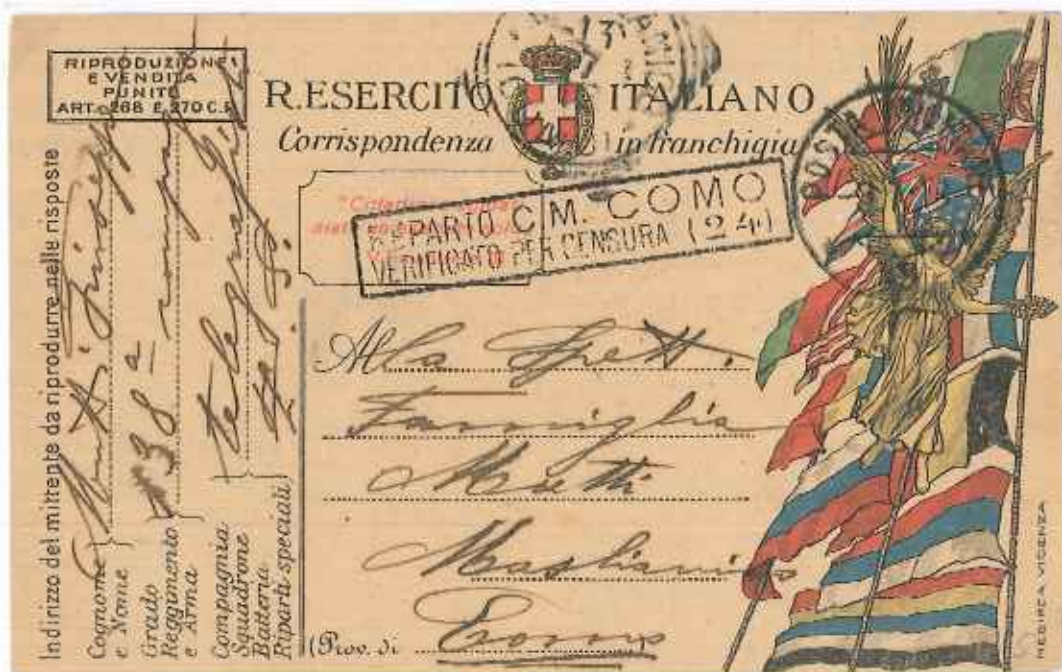 RIPRODUZIONE
E VENDITA
PUNITE
ART. 268 E 270 C.P.
R. ESERCITO ITALIANO
Corrispondenza in franchigia
"Cittadini e soldati
REPARTO C.M. COMO
VERIFICATO PER CENSURA (24)
POSTA
Indirizzo del mittente da riprodurre nelle risposte
Cognome
e Nome
Giuseppe
Grado
Reggimento
e Arma
38ª compagnia
Compagnia
Squadrone
Batteria
Riparti speciali
telegrafisti
Alla Spett.
Famiglia
Maslianico
(Prov. di Como
MESIREA VICENZA